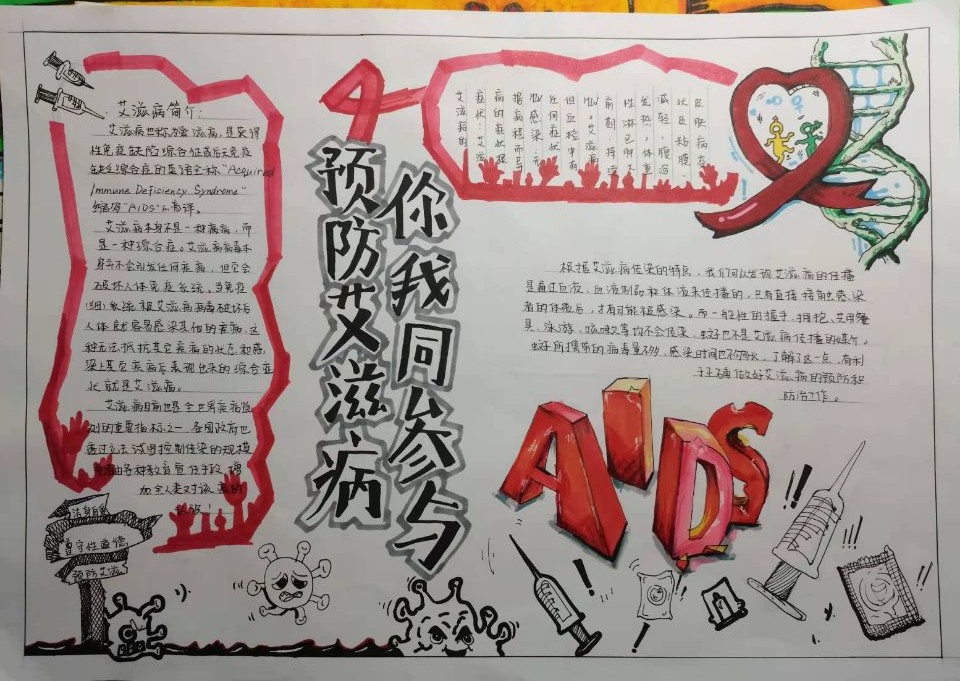 艾滋病简介：
艾滋病也称爱滋病，是获得
性免疫缺陷综合征或后天免疫
缺乏综合症的英语全称"Acquired
Immune Deficiency Syndrome"
缩写"AIDS"的音译。
艾滋病本身不是一种疾病，而
是一种综合症。艾滋病病毒本
身并不会引发任何疾病，但它会
破坏人体免疫系统。当免疫
系统被艾滋病病毒破坏后
人体就容易感染其他的疾病，这
种无法抵抗其它疾病的状态和感
染上其它疾病后表现出来的综合症
状就是艾滋病。
艾滋病目前世界
的重要指标之一，各国政府也
透过立法试图控制传染的规模
各种教育宣传手段，增
加全人类对该病的
洁身自爱
遵守性道德
预防艾滋
预防艾滋病
你我同参与
艾滋病的
症状：艾滋
病的症状根
据病程而
感染：无
任何症状
但血检中有
HIV。艾滋病
前期：持续
性淋巴肿大
发热、体重
减轻、腹泻
皮肤粘膜
根据艾滋病传染的特点，我们可以发现艾滋病的传播
是通过血液，血液制品和体液来传播的，只有直接接触感染
者的体液后，才有可能被感染。而一般性的握手，拥抱，共用餐
具，泳游，咳嗽等均不会传染，蚊子也不是艾滋病传播的媒介。
蚊子所携带的病毒量不够，感染时间也不够长，了解了这一点，有利
于正确做好艾滋病的预防和
防治工作。
AIDS